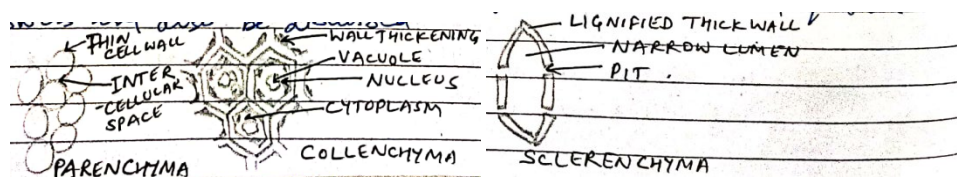 be
THIN
CELLWALL
INTER
-CELLULAR
SPACE
PARENCHYMA
WALL THICKENING
VACUOLE
NUCLEUS
CYTOPLASM
COLLENCHYMA
LIGNIFIED THICKWALL
NARROW LUMEN
PIT.
SCLERENCHYMA